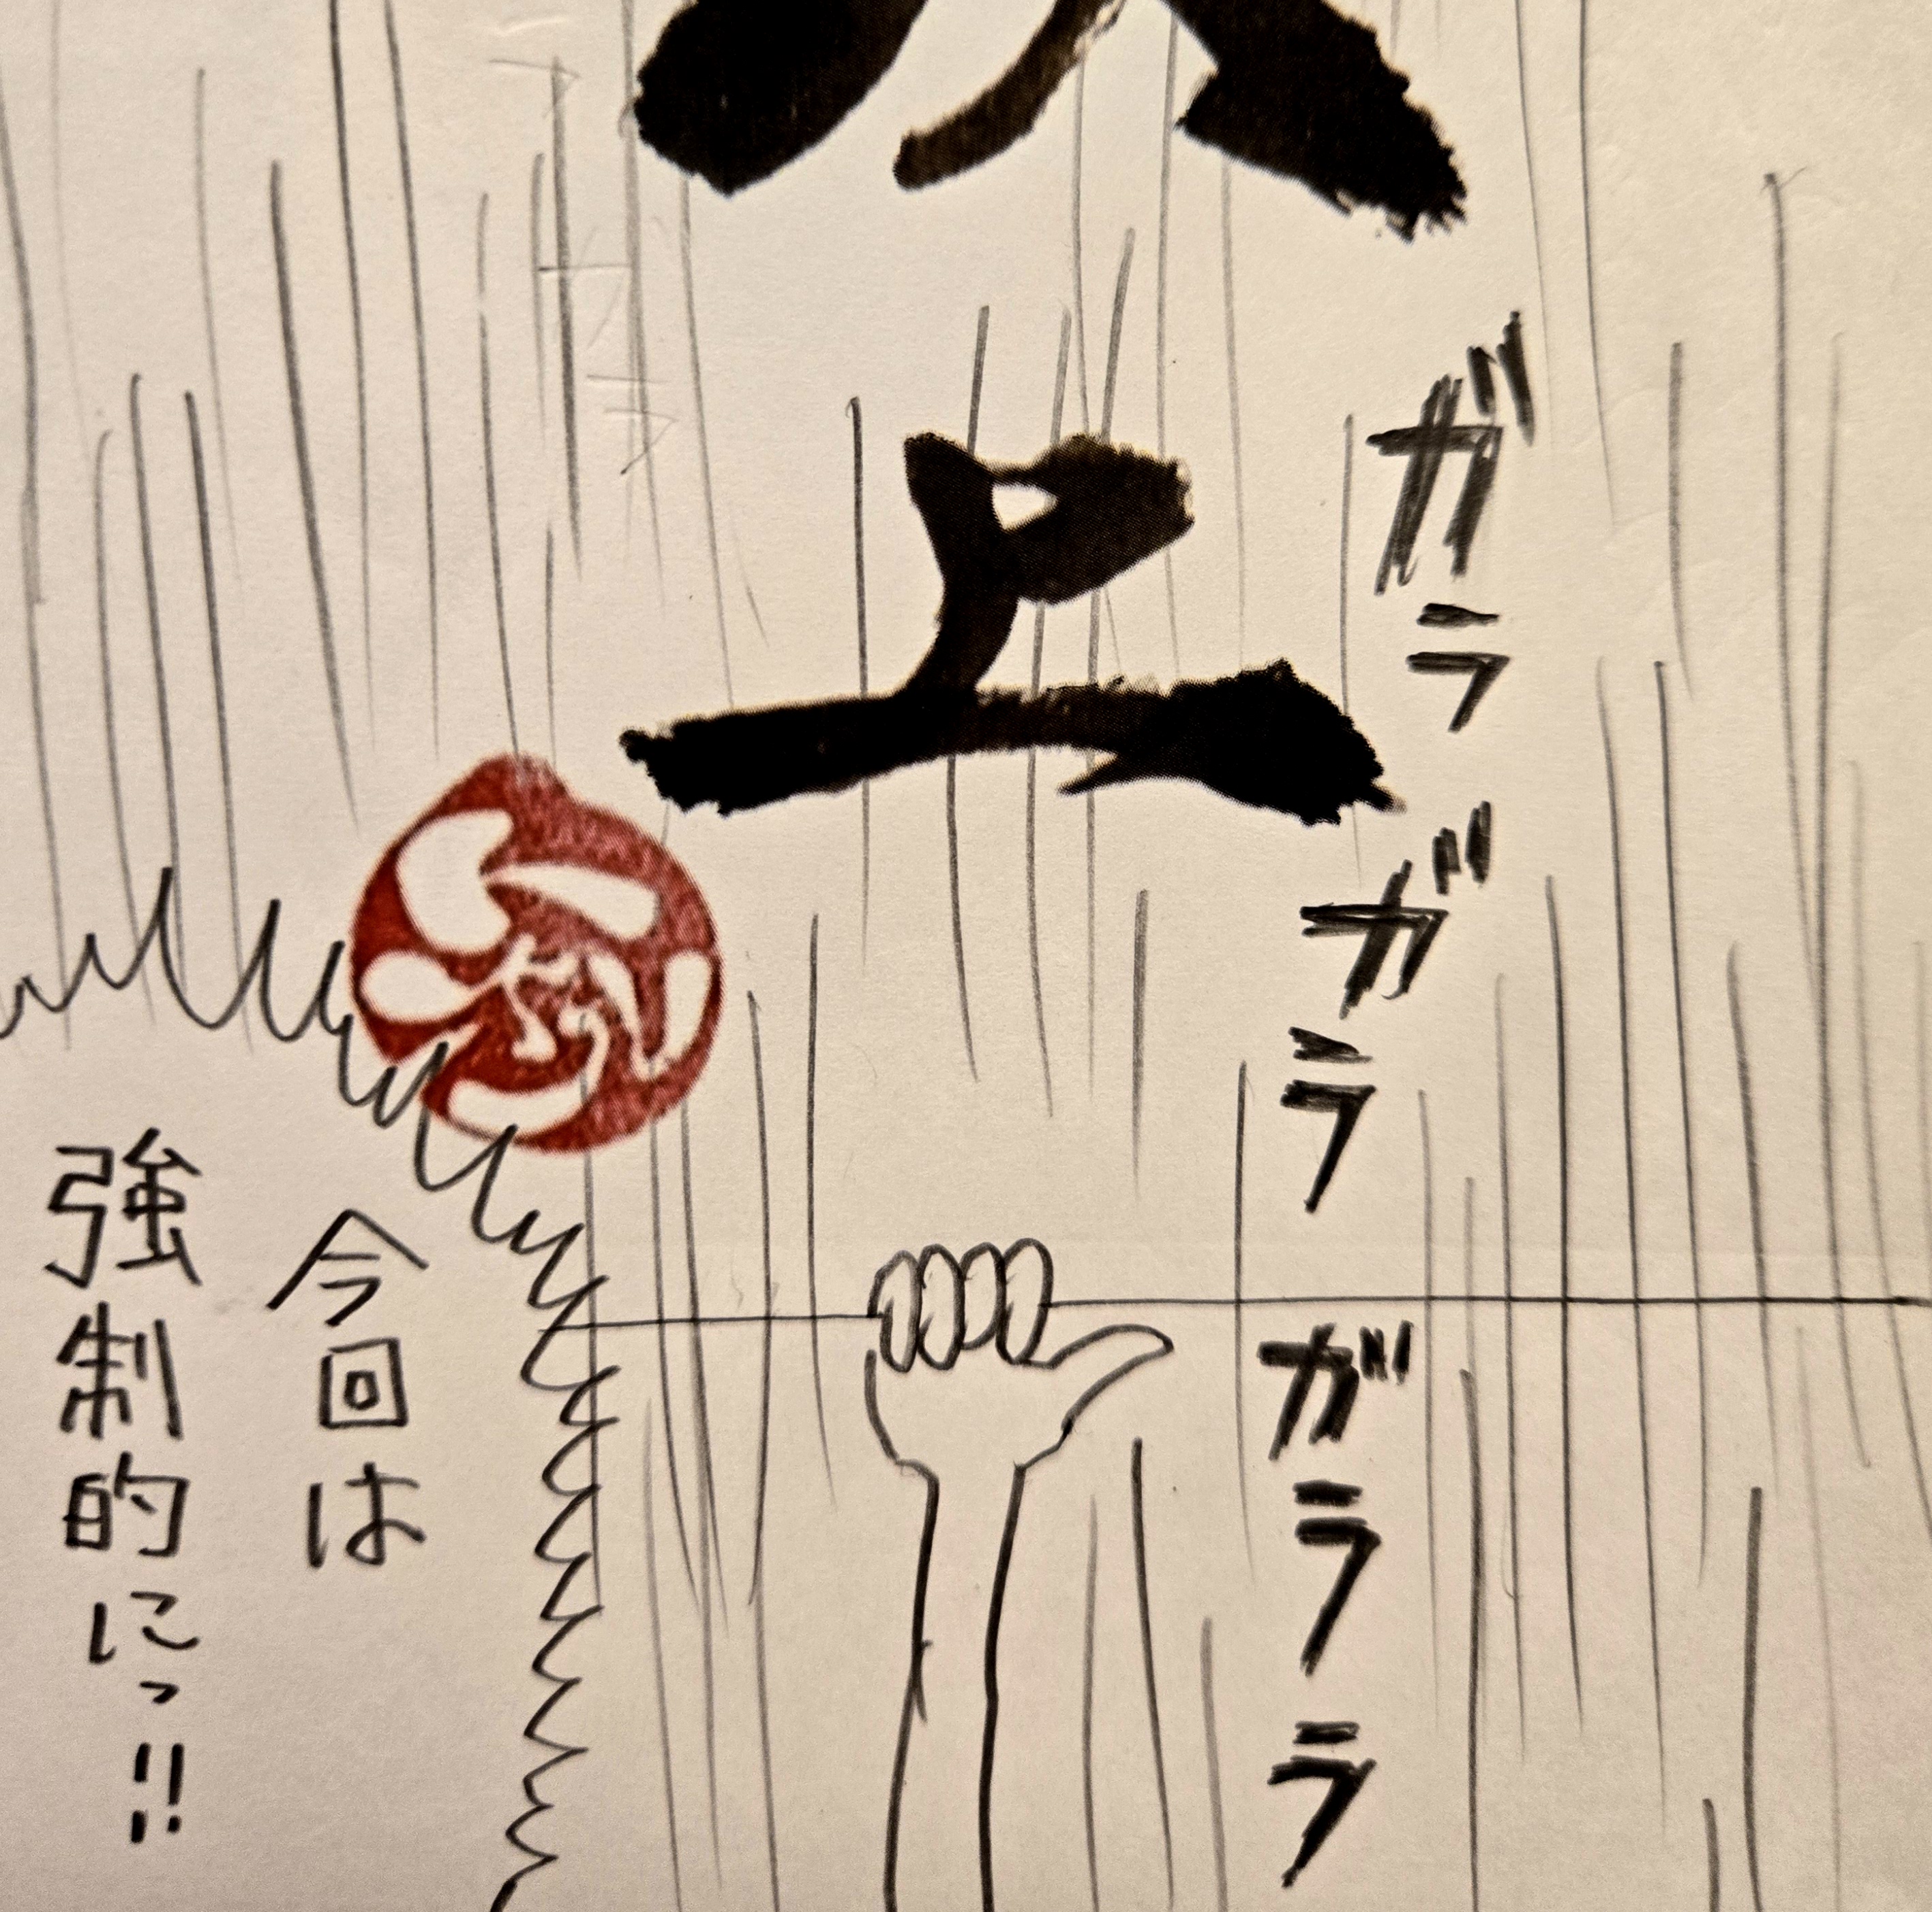 ガラガラガララ
上
今回は
強制的にっ!!